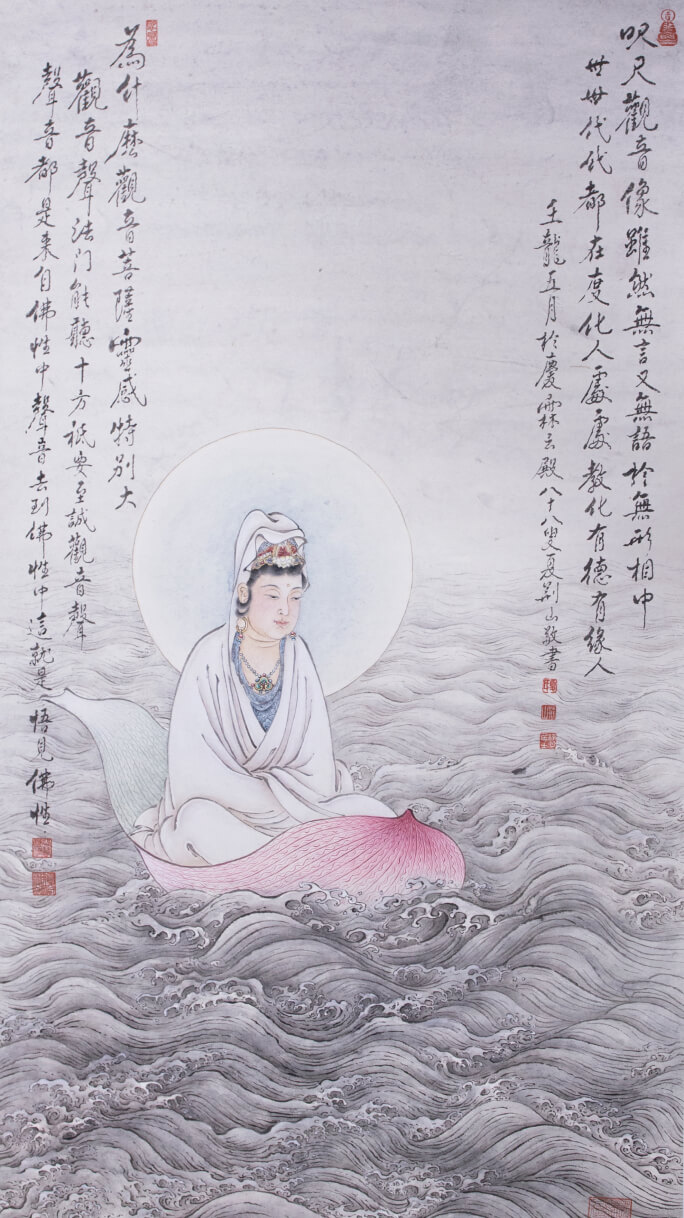 咫尺觀音像雖然無言又無語於無形相中
世世代代都在度化人處處教化有德有緣人
壬龍五月於慶霖玄殿八十八叟夏荊山敬書
為什麼觀音菩薩靈感特別大
觀音聲法門能聽十方祇要至誠觀音聲
聲音都是來自佛性中聲音去到佛性中這就是悟見佛性